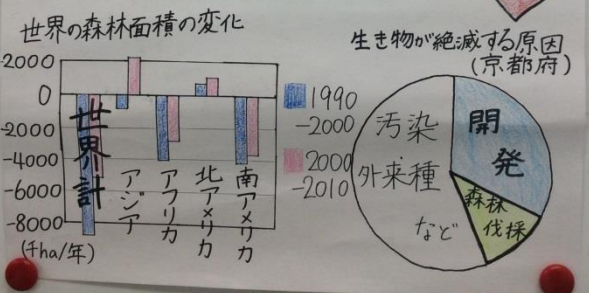 世界の森林面積の変化
2000
0
-2000
-4000
-6000
-8000
(千ha/年)
世界計
アジア
アフリカ
北アメリカ
南アメリカ
1990
-2000
2000
-2010
生き物が絶滅する原因
(京都府)
開発
森林
伐採
汚染
外来種
など